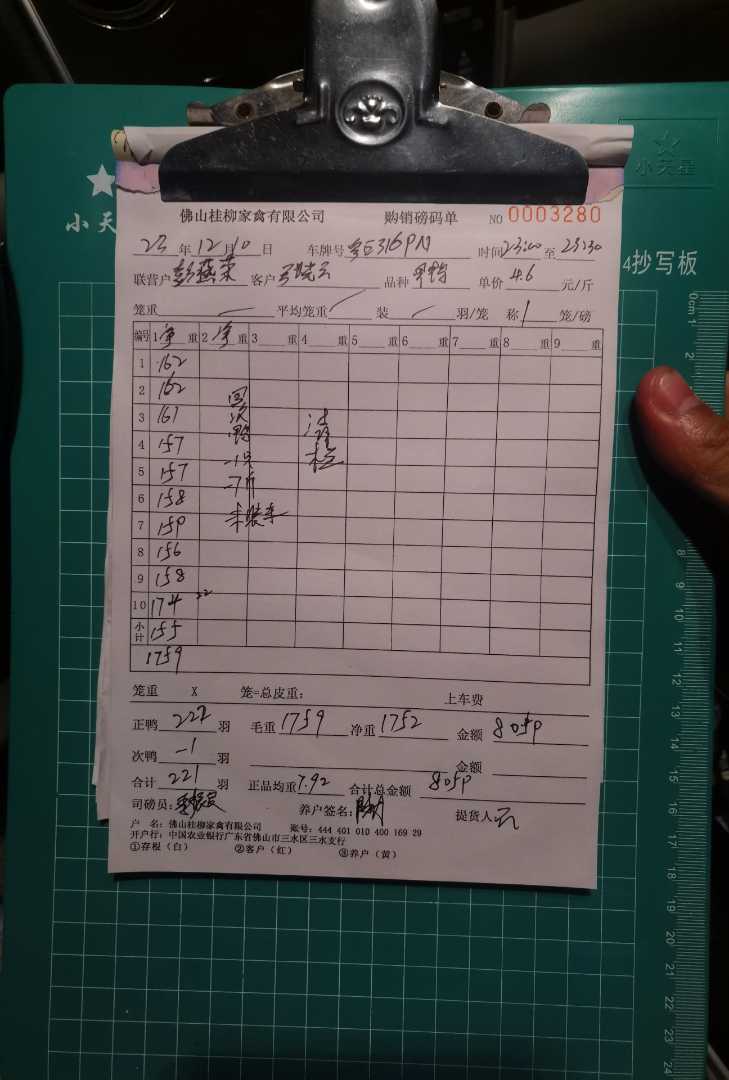 小天星
小天
佛山桂柳家禽有限公司 购销磅码单 NO 0003280
23 年 12 月 10 日 车牌号 时间 23:00 至 23:30
4抄写板
联营户 彭燕荣 客户 品种 单价 4.6 元/斤
笼重 平均笼重 装 羽/笼 称 1 笼/磅
编号 1 净 重 2 净 重 3 重 4 重 5 重 6 重 7 重 8 重 9 重
1 162
2 162 回
3 161 次 清
4 157 鸭
5 157 -1只
6 158 -7斤
7 159 未装车
8 156
9 158
10 174 22
小计 155
1759
笼重 X 笼=总皮重: 上车费
正鸭 222 羽 毛重 1759 净重 1752 金额 8059
次鸭 -1 羽 金额
合计 221 羽 正品均重 7.92 合计总金额 8059
司磅员: 养户签名: 提货人
户 名: 佛山桂柳家禽有限公司 账号: 444 401 010 400 169 29
开户行: 中国农业银行广东省佛山市三水区三水支行
①存根(白) ②客户(红) ③养户(黄)
0cm 1
2
8
9
10
11
12
13
14
15
16
17
18
19
20
21
22
23
24